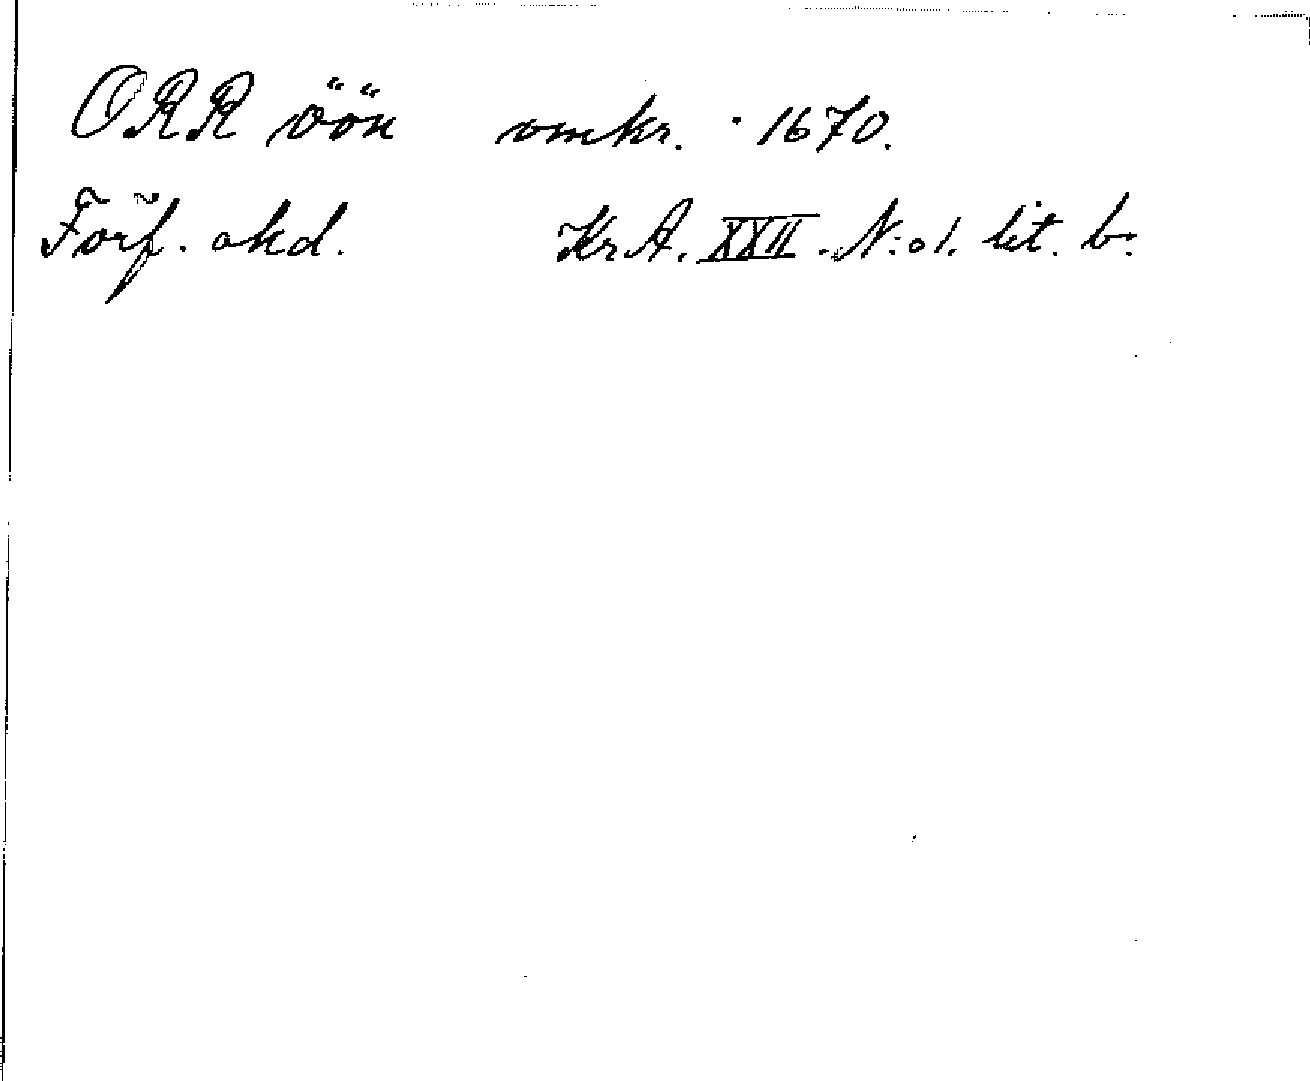 ORR öön omkr. 1670.
Förf. okd. Kr A. XXII. N:o 1. lit. b.